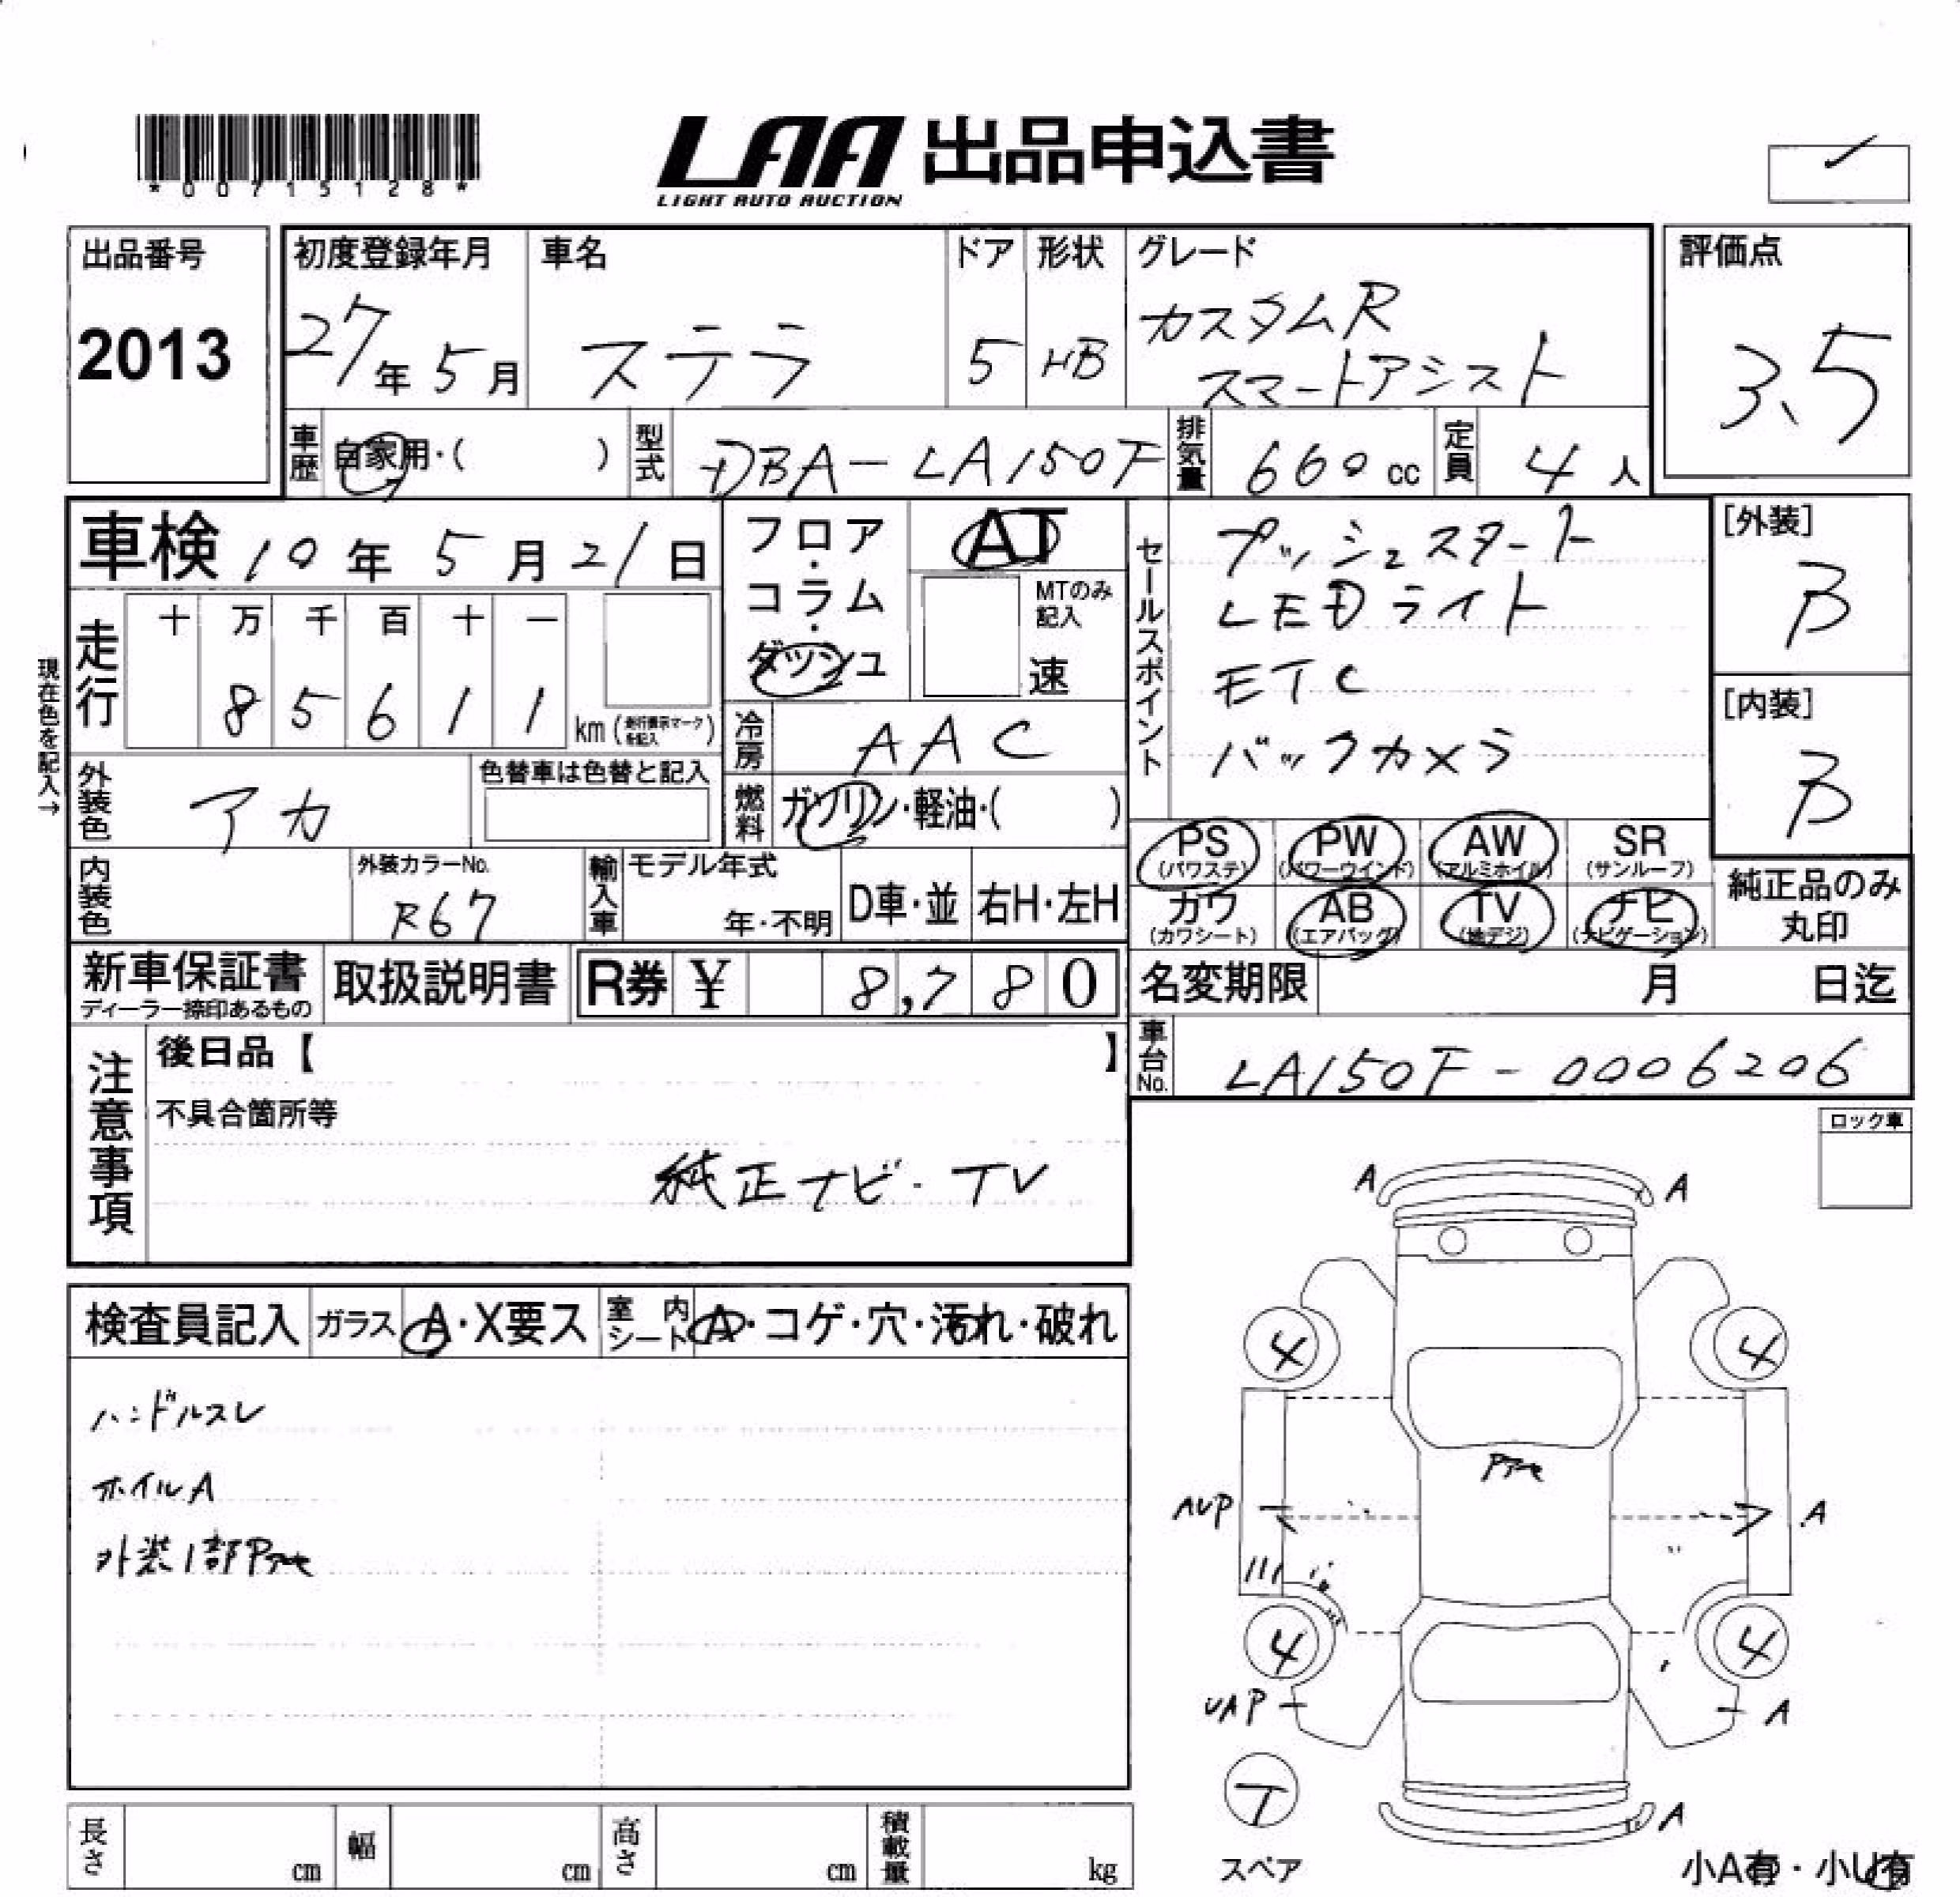 *00715128*
LAA 出品申込書
LIGHT AUTO AUCTION
出品番号
2013
初度登録年月
27年5月
車名
ステラ
ドア
5
形状
HB
グレード
カスタムR
スマートアシスト
評価点
3.5
車歴 自家用・( )
型式 DBA-LA150F
排気量 660cc
定員 4人
車検 10年5月21日
現在色を記入→
走行
十 万 千 百 十 一
8 5 6 1 1
km (走行表示マークを記入)
フロア・コラム・ダッシュ
AT
MTのみ記入
速
冷房 AAC
燃料 ガソリン・軽油・( )
外装色 アカ
色替車は色替と記入
内装色
外装カラーNo.
R67
輸入車
モデル年式
年・不明
D車・並
右H・左H
セールスポイント
プッシュスタート
LEDライト
ETC
バックカメラ
[外装]
B
[内装]
B
PS (パワステ)
PW (パワーウインド)
AW (アルミホイル)
SR (サンルーフ)
カワ (カワシート)
AB (エアバッグ)
TV (地デジ)
ナビ (ナビゲーション)
純正品のみ丸印
新車保証書
ディーラー捺印あるもの
取扱説明書
R券 ¥ 8,780
名変期限 月 日迄
車台No. LA150F-0006206
注意事項
後日品【 】
不具合箇所等
純正ナビ・TV
ロック車
検査員記入
ガラス A・X要ス
室内シート A・コゲ・穴・汚れ・破れ
ハンドルスレ
ホイルA
外装1部Pアセ
A A
4 4
Pアセ
AUP A
4 4
UAP A
T
スペア
A
小A有・小U有
長さ cm
幅 cm
高さ cm
積載量 kg